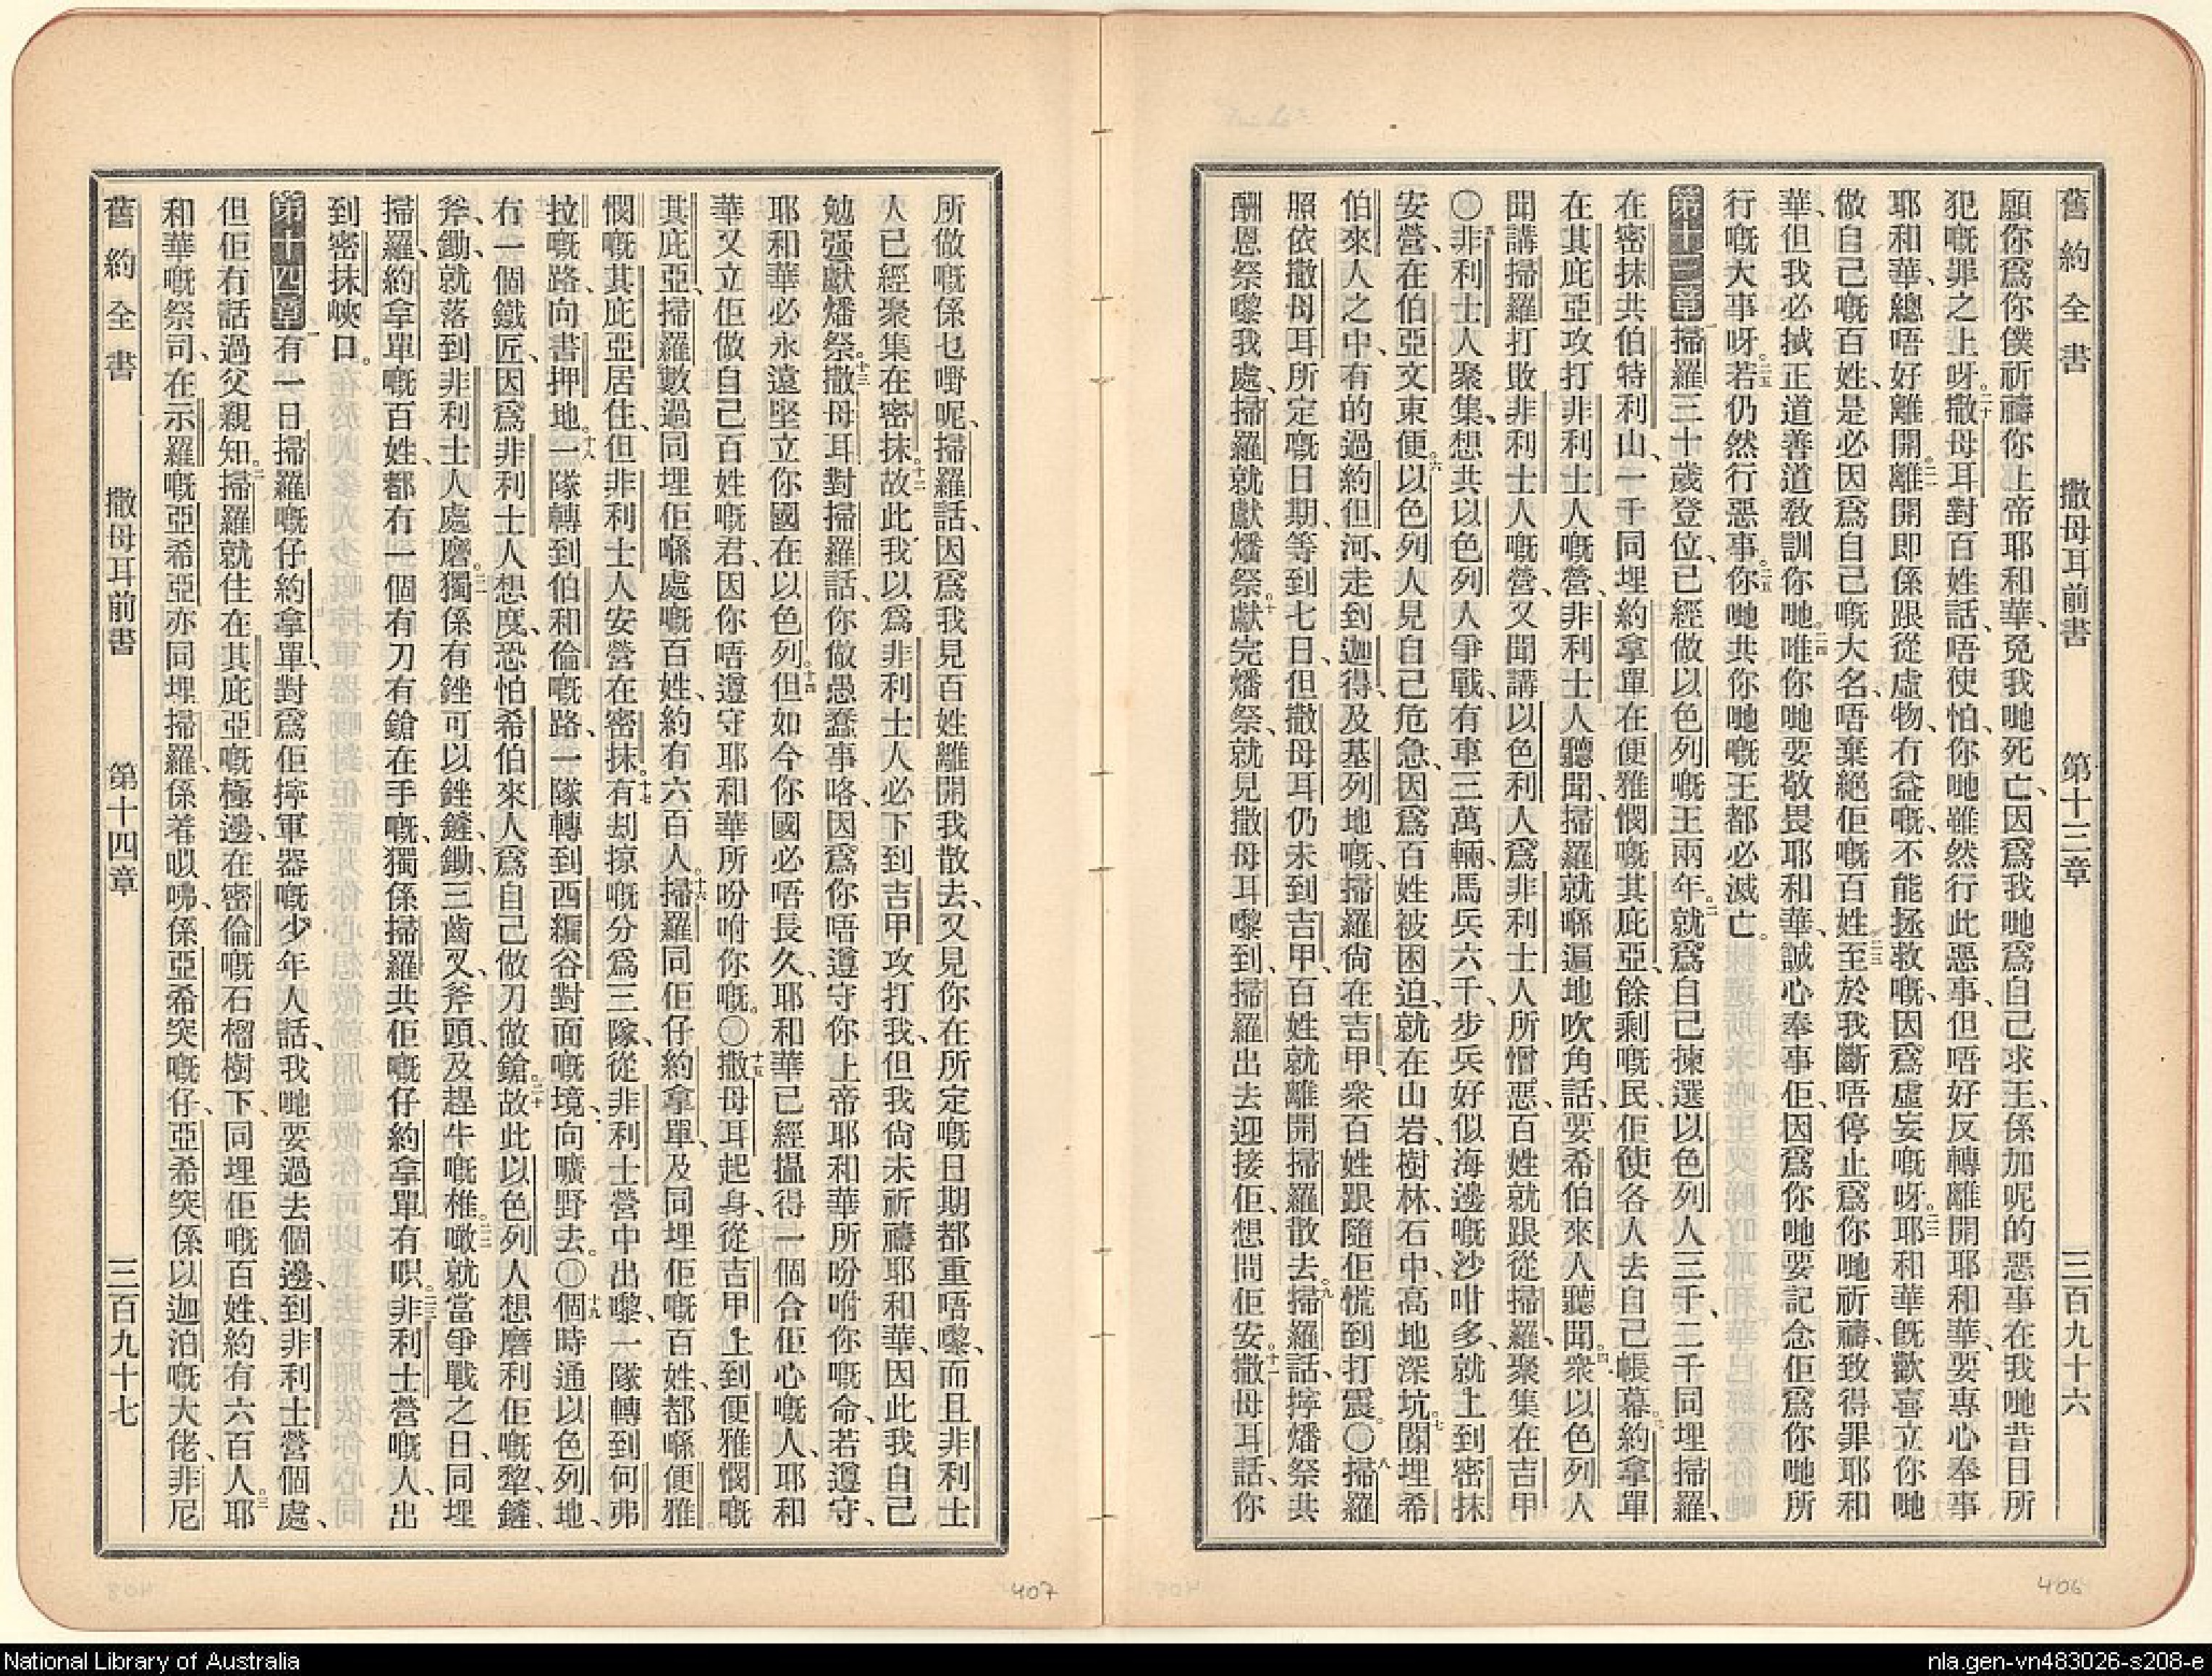 舊約全書 撒母耳前書 第十三章 三百九十六
願你爲你僕祈禱你上帝耶和華、免我哋死亡、因爲我哋爲自己求王、係加呢的惡事在我哋昔日所
犯嘅罪之上呀。二十撒母耳對百姓話、唔使怕、你哋雖然行此惡事、但唔好反轉離開耶和華、要專心奉事
耶和華、總唔好離開。二一離開卽係跟從虛物、冇益嘅、不能拯救嘅、因爲虛妄嘅呀。二二耶和華旣歡喜立你哋
做自己嘅百姓、是必因爲自己嘅大名、唔棄絕佢嘅百姓。二三至於我斷唔停止爲你哋祈禱、致得罪耶和
華、但我必拭正道善道敎訓你哋。二四唯你哋要敬畏耶和華、誠心奉事佢、因爲你哋要記念佢爲你哋所
行嘅大事呀。二五若仍然行惡事。二五你哋共你哋嘅王都必滅亡。
第十三章 一掃羅三十歲登位、已經做以色列嘅王兩年。二就爲自己揀選以色列人三千、二千同埋掃羅、
在密抹共伯特利山、一千同埋約拿單在便雅憫嘅其庇亞、餘剩嘅民、佢使各人去自己帳幕。三約拿單
在其庇亞攻打非利士人嘅營、非利士人聽聞、掃羅就喺遍地吹角話、要希伯來人聽聞。四衆以色列人
聞講掃羅打敗非利士人嘅營、又聞講以色利人爲非利士人所憎惡、百姓就跟從掃羅、聚集在吉甲
〇五非利士人聚集、想共以色列人爭戰、有車三萬輛、馬兵六千、步兵好似海邊嘅沙咁多、就上到密抹
安營、在伯亞文東便。六以色列人見自己危急、因爲百姓被困迫、就在山岩、樹林、石中、高地深坑。七閉埋希
伯來人之中、有的過約但河、走到迦得、及基列地嘅、掃羅尙在吉甲、衆百姓跟隨佢慌到打震。〇八掃羅
照依撒母耳所定嘅日期、等到七日、但撒母耳仍未到吉甲、百姓就離開掃羅散去。九掃羅話、擰燔祭共
酬恩祭嚟我處、掃羅就獻燔祭。十獻完燔祭、就見撒母耳嚟到、掃羅出去迎接佢、想問佢安。十一撒母耳話、你
所做嘅係乜嘢呢、掃羅話、因爲我見百姓離開我散去、又見你在所定嘅日期都重唔嚟、而且非利士
人已經聚集在密抹。十二故此我以爲非利士人必下到吉甲攻打我、但我尙未祈禱耶和華、因此我自己
勉强獻燔祭。十三撒母耳對掃羅話、你做愚蠢事咯、因爲你唔遵守你上帝耶和華所吩咐你嘅命、若遵守、
耶和華必永遠堅立你國在以色列。十四但如今你國必唔長久、耶和華已經搵得一個合佢心嘅人、耶和
華又立佢做自己百姓嘅君、因你唔遵守耶和華所吩咐你嘅。〇十五撒母耳起身、從吉甲上到便雅憫嘅
其庇亞、掃羅數過同埋佢喺處嘅百姓、約有六百人。十六掃羅同佢仔約拿單、及同埋佢嘅百姓、都喺便雅
憫嘅其庇亞居住、但非利士人安營在密抹。十七有刦掠嘅分爲三隊、從非利士營中出嚟、一隊轉到何弗
拉嘅路、向書押地。十八一隊轉到伯和倫嘅路、一隊轉到西編谷對面嘅境、向曠野去。〇十九個時通以色列地、
冇一個鐵匠、因爲非利士人想度、恐怕希伯來人爲自己做刀做鎗。二十故此以色列人想磨利佢嘅犁、鏟、
斧、鋤、就落到非利士人處磨。二一獨係有銼可以銼鏟、鋤、三齒叉、斧頭、及趕牛嘅椎。二二噉就當爭戰之日、同埋
掃羅、約拿單嘅百姓、都冇一個有刀有鎗在手嘅、獨係掃羅共佢嘅仔約拿單有呮。二三非利士營嘅人、出
到密抹峽口。
第十四章 一有一日掃羅嘅仔約拿單、對爲佢擰軍器嘅少年人話、我哋要過去個邊、到非利士營個處、
但佢冇話過父親知。二掃羅就住在其庇亞嘅極邊、在密倫嘅石榴樹下、同埋佢嘅百姓、約有六百人。三耶
和華嘅祭司、在示羅嘅亞希亞亦同埋掃羅、係着𠵱咈、係亞希突嘅仔、亞希突係以迦泊嘅大佬、非尼
舊約全書 撒母耳前書 第十四章 三百九十七
407
406
National Library of Australia
nla.gen-vn483026-s208-e